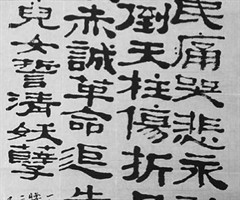 民痛哭悲永
倒天柱傷折
赤誠革命追先
兒女誓清妖孽